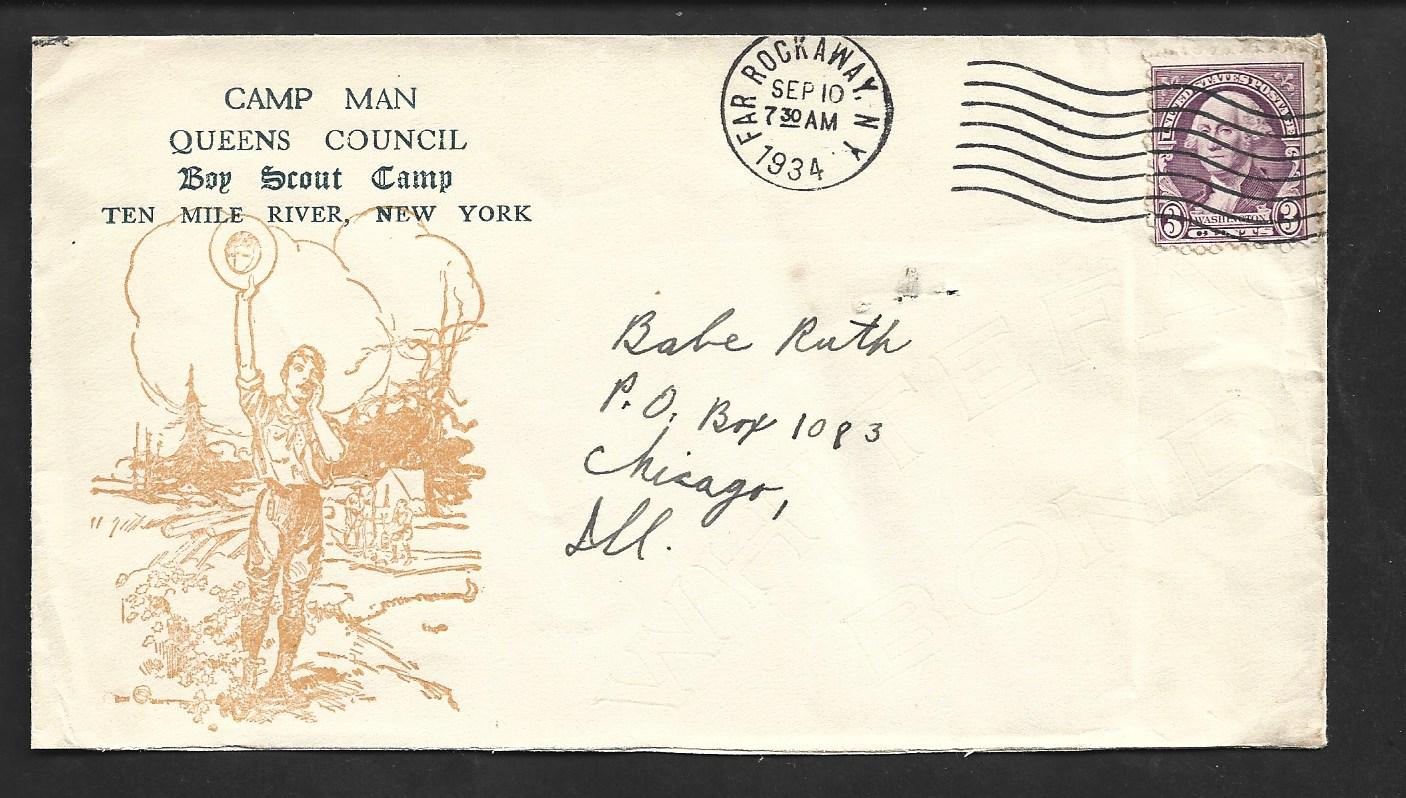 CAMP MAN
QUEENS COUNCIL
Boy Scout Camp
TEN MILE RIVER, NEW YORK
FAR ROCKAWAY, N Y
SEP 10
7 30 AM
1934
UNITED STATES POSTAGE
3 WASHINGTON 3
Babe Ruth
P.O. Box 1083
Chicago,
Ill.
WHITE
BOND